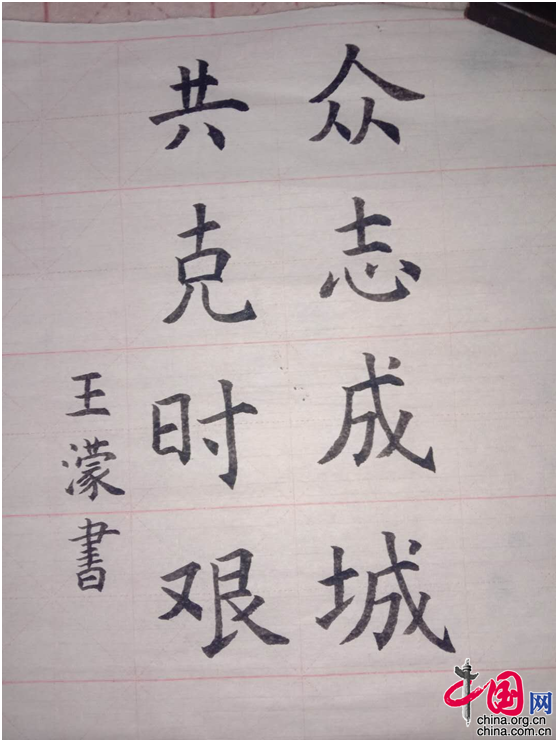 众志成城
共克时艰
王濛書
中国网
china.org.cn
china.com.cn